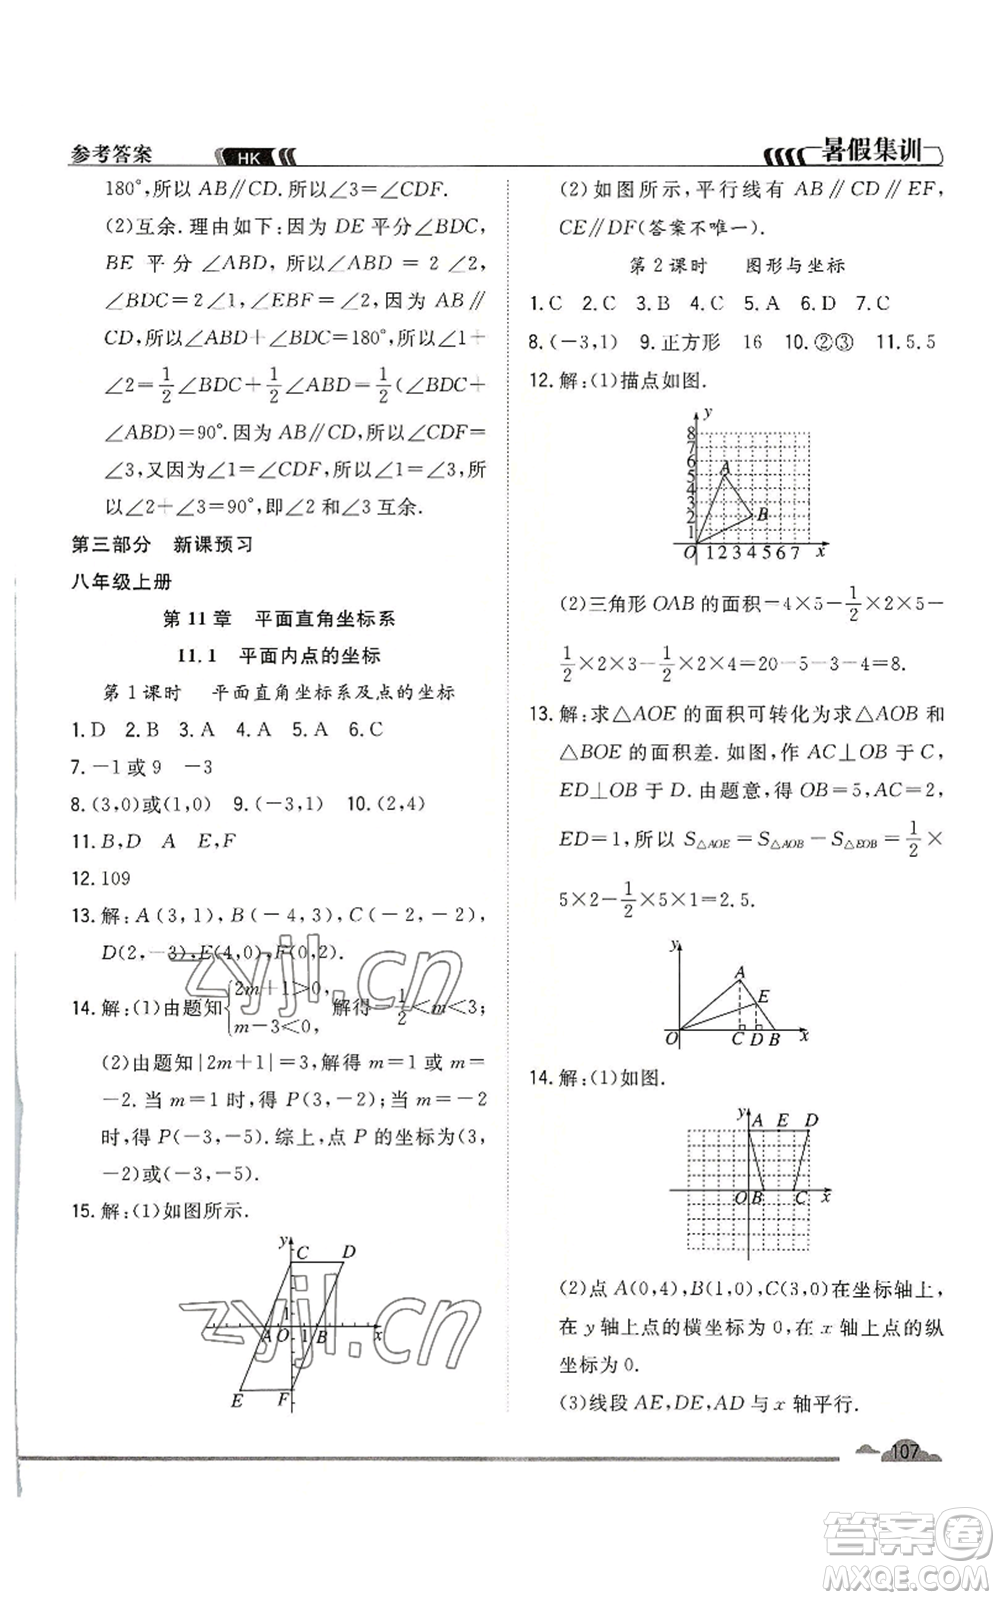 参考答案
HK
暑假集训
180°,所以 AB∥CD.所以∠3=∠CDF.
(2)互余.理由如下:因为 DE 平分∠BDC,
BE 平 分 ∠ABD, 所 以 ∠ABD = 2 ∠2,
∠BDC=2∠1,∠EBF=∠2,因为 AB∥
CD,所以∠ABD+∠BDC=180°,所以∠1+
∠2=1/2∠BDC+1/2∠ABD=1/2(∠BDC+
∠ABD)=90°.因为 AB∥CD,所以∠CDF=
∠3,又因为∠1=∠CDF,所以∠1=∠3,所
以∠2+∠3=90°,即∠2 和∠3 互余.
第三部分 新课预习
八年级上册
第 11 章 平面直角坐标系
11.1 平面内点的坐标
第 1 课时 平面直角坐标系及点的坐标
1.D 2.B 3.A 4.A 5.A 6.C
7.-1或 9 -3
8.(3,0)或(1,0) 9.(-3,1) 10.(2,4)
11.B,D A E,F
12.109
13.解:A(3,1),B(-4,3),C(-2,-2),
D(2,-3),E(4,0),F(0,2).
14.解:(1)由题知{2m+1>0, m-3<0, 解得-1/2<m<3;
(2)由题知|2m+1|=3,解得 m=1 或 m=
-2.当 m=1 时,得 P(3,-2);当 m=-2
时,得 P(-3,-5).综上,点 P 的坐标为(3,
-2)或(-3,-5).
15.解:(1)如图所示.
y
C D
1
A O 1 B x
E F
zyjl.cn
zyjl.cn
(2)如图所示,平行线有 AB∥CD∥EF,
CE∥DF(答案不唯一).
第 2 课时 图形与坐标
1.C 2.C 3.B 4.C 5.A 6.D 7.C
8.(-3,1) 9.正方形 16 10.②③ 11.5.5
12.解:(1)描点如图.
y
8
7
6
5 A
4
3
2 B
1
O 1 2 3 4 5 6 7 x
(2)三角形 OAB 的面积=4×5-1/2×4×2-
1/2×2×3-1/2×5×2=20-4-3-5=8.
13.解:求△AOE 的面积可转化为求△AOB 和
△BOE 的面积差.如图,作 AC⊥OB 于 C,
ED⊥OB 于 D.由题意,得 OB=5,AC=2,
ED=1,所以 S△AOE=S△AOB-S△EOB=1/2×
5×2-1/2×5×1=2.5.
y
A
E
O C D B x
14.解:(1)如图.
y A E D
O B C x
(2)点 A(0,4),B(1,0),C(3,0)在坐标轴上,
在 y 轴上点的横坐标为 0,在 x 轴上点的纵
坐标为 0.
(3)线段 AE,DE,AD 与 x 轴平行.
107
答案卷
MXQE.COM